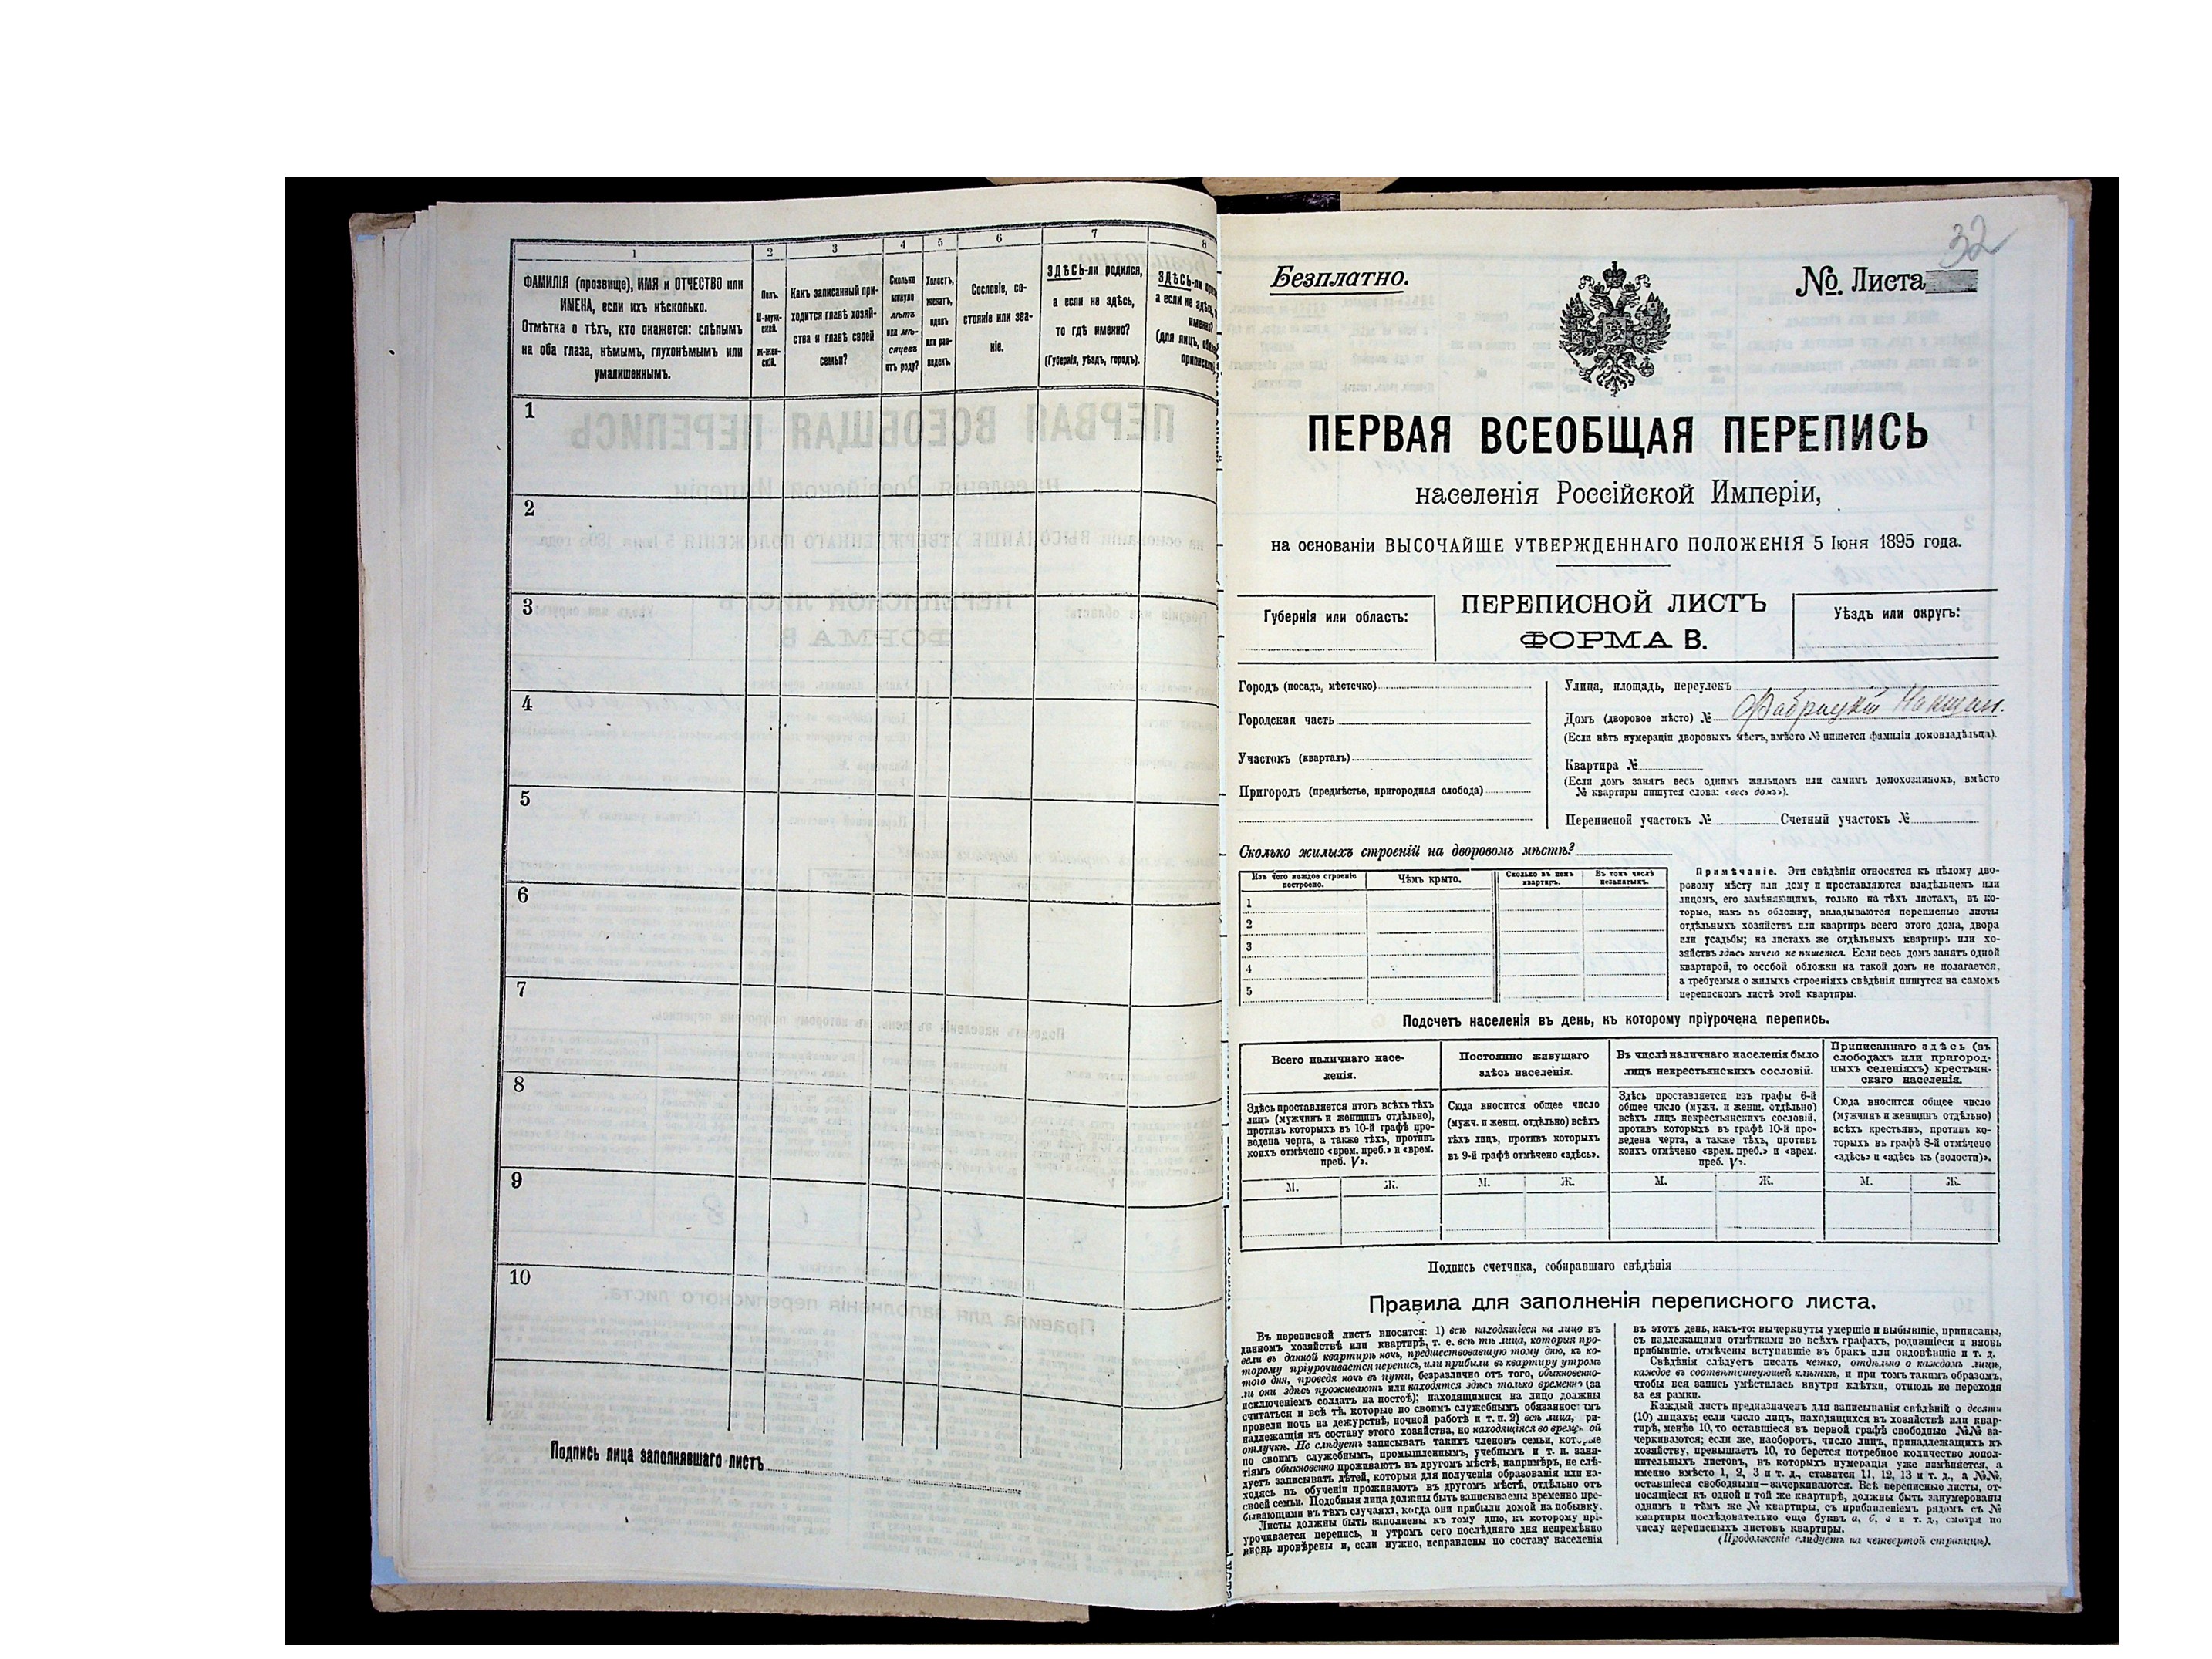 1 2 3 4 5 6 7 8
ФАМИЛІЯ (прозвище), ИМЯ и ОТЧЕСТВО или
ИМЕНА, если ихъ нѣсколько.
Отмѣтка о тѣхъ, кто окажется: слѣпымъ
на оба глаза, нѣмымъ, глухонѣмымъ или
умалишеннымъ.
Полъ.
М-муж-
ской.
Ж-жен-
скій.
Какъ записанный при-
ходится главѣ хозяй-
ства и главѣ своей
семьи?
Сколько
минуло
лѣтъ
или мѣ-
сяцевъ
отъ роду?
Холостъ,
женатъ,
вдовъ
или раз-
веденъ.
Сословіе, со-
стояніе или зва-
ніе.
ЗДѢСЬ-ли родился,
а если не здѣсь,
то гдѣ именно?
(Губернія, уѣздъ, городъ).
ЗДѢСЬ-ли
а если не здѣсь,
(для лицъ,
1
2
3
4
5
6
7
8
9
10
Подпись лица заполнявшаго листъ
32
Безплатно.
№. Листа
ПЕРВАЯ ВСЕОБЩАЯ ПЕРЕПИСЬ
населенія Россійской Имперіи,
на основаніи ВЫСОЧАЙШЕ УТВЕРЖДЕННАГО ПОЛОЖЕНІЯ 5 Іюня 1895 года.
Губернія или область:
ПЕРЕПИСНОЙ ЛИСТЪ
ФОРМА В.
Уѣздъ или округъ:
Городъ (посадъ, мѣстечко)
Городская часть
Участокъ (кварталъ)
Пригородъ (предмѣстье, пригородная слобода)
Улица, площадь, переулокъ
Домъ (дворовое мѣсто) №
(Если нѣтъ нумераціи дворовыхъ мѣстъ, вмѣсто № пишется фамилія домовладѣльца).
Квартира №
(Если домъ занятъ весь однимъ жильцомъ или самимъ домохозяиномъ, вмѣсто
№ квартиры пишутся слова: «весь домъ»).
Переписной участокъ № Счетный участокъ №
Сколько жилыхъ строеній на дворовомъ мѣстѣ?
Изъ чего каждое строеніе
построено.
Чѣмъ крыто.
Сколько въ немъ
квартиръ.
Въ томъ числѣ
незанятыхъ.
1
2
3
4
5
Примѣчаніе. Эти свѣдѣнія относятся къ цѣлому дво-
ровому мѣсту или дому и проставляются владѣльцемъ или
лицомъ, его замѣняющимъ, только на тѣхъ листахъ, въ ко-
торые, какъ въ обложку, вкладываются переписные листы
отдѣльныхъ хозяйствъ или квартиръ всего этого дома, двора
или усадьбы; на листахъ же отдѣльныхъ квартиръ или хо-
зяйствъ здѣсь ничего не пишется. Если весь домъ занятъ одной
квартирой, то особой обложки на такой домъ не полагается,
а требуемыя о жилыхъ строеніяхъ свѣдѣнія пишутся на самомъ
переписномъ листѣ этой квартиры.
Подсчетъ населенія въ день, къ которому пріурочена перепись.
Всего наличнаго насе-
ленія.
Здѣсь проставляется итогъ всѣхъ тѣхъ
лицъ (мужчинъ и женщинъ отдѣльно),
противъ которыхъ въ 10-й графѣ про-
ведена черта, а также тѣхъ, противъ
коихъ отмѣчено «врем. преб.» и «врем.
преб. V».
Постоянно живущаго
здѣсь населенія.
Сюда вносится общее число
(мужч. и женщ. отдѣльно) всѣхъ
тѣхъ лицъ, противъ которыхъ
въ 9-й графѣ отмѣчено «здѣсь».
Въ числѣ наличнаго населенія было
лицъ некрестьянскихъ сословій.
Здѣсь проставляется изъ графы 6-й
общее число (мужч. и женщ. отдѣльно)
всѣхъ лицъ некрестьянскихъ сословій,
противъ которыхъ въ графѣ 10-й про-
ведена черта, а также тѣхъ, противъ
коихъ отмѣчено «врем. преб.» и «врем.
преб. V».
Приписаннаго здѣсь (въ
слободахъ или пригород-
ныхъ селеніяхъ) крестьян-
скаго населенія.
Сюда вносится общее число
(мужчинъ и женщинъ отдѣльно)
всѣхъ крестьянъ, противъ ко-
торыхъ въ графѣ 8-й отмѣчено
«здѣсь» и «здѣсь къ (волости)».
М. Ж. М. Ж. М. Ж. М. Ж.
Подпись счетчика, собиравшаго свѣдѣнія
Правила для заполненія переписного листа.
Въ переписной листъ вносятся: 1) всѣ находящіеся на лицо въ
данномъ хозяйствѣ или квартирѣ, т. е. всѣ тѣ лица, которыя про-
вели въ данной квартирѣ ночь, предшествовавшую тому дню, къ ко-
торому пріурочивается перепись, или прибыли въ квартиру утромъ
того дня, проведя ночь въ пути, безразлично отъ того, обыкновенно-
ли они здѣсь проживаютъ или находятся здѣсь только временно (за
исключеніемъ солдатъ на постоѣ); находящимися на лицо должны
считаться и всѣ тѣ, которые по своимъ служебнымъ обязанностямъ
провели ночь на дежурствѣ, ночной работѣ и т. п. 2) всѣ лица, при-
надлежащія къ составу этого хозяйства, но находящіяся во времен. ой
отлучкѣ. Не слѣдуетъ записывать такихъ членовъ семьи, которые
по своимъ служебнымъ, промышленнымъ, учебнымъ и т. п. заня-
тіямъ обыкновенно проживаютъ въ другомъ мѣстѣ, напримѣръ, не слѣ-
дуетъ записывать дѣтей, которыя для полученія образованія или на-
ходясь въ обученіи проживаютъ въ другомъ мѣстѣ, отдѣльно отъ
своей семьи. Подобныя лица должны быть записываемы временно пре-
бывающими въ тѣхъ случаяхъ, когда они прибыли домой на побывку.
Листы должны быть заполнены къ тому дню, къ которому прі-
урочивается перепись, и утромъ сего послѣдняго дня непремѣнно
вновь провѣрены и, если нужно, исправлены по составу населенія
въ этотъ день, какъ-то: вычеркнуты умершіе и выбывшіе, приписаны,
съ надлежащими отмѣтками во всѣхъ графахъ, родившіеся и вновь
прибывшіе, отмѣчены вступившіе въ бракъ или овдовѣвшіе и т. д.
Свѣдѣнія слѣдуетъ писать четко, отдѣльно о каждомъ лицѣ,
каждое въ соотвѣтствующей клѣткѣ, и при томъ такимъ образомъ,
чтобы вся запись умѣстилась внутри клѣтки, отнюдь не переходя
за ея рамки.
Каждый листъ предназначенъ для записыванія свѣдѣній о десяти
(10) лицахъ; если число лицъ, находящихся въ хозяйствѣ или квар-
тирѣ, менѣе 10, то оставшіеся въ первой графѣ свободные №№ за-
черкиваются; если же, наоборотъ, число лицъ, принадлежащихъ къ
хозяйству, превышаетъ 10, то берется потребное количество допол-
нительныхъ листовъ, въ которыхъ нумерація уже измѣняется, а
именно вмѣсто 1, 2, 3 и т. д., ставится 11, 12, 13 и т. д., а №№,
оставшіеся свободными—зачеркиваются. Всѣ переписные листы, от-
носящіеся къ одной и той же квартирѣ, должны быть занумерованы
однимъ и тѣмъ же № квартиры, съ прибавленіемъ рядомъ съ №
квартиры послѣдовательно еще буквъ а, б, в и т. д., смотря по
числу переписныхъ листовъ квартиры.
(Продолженіе слѣдуетъ на четвертой страницѣ).